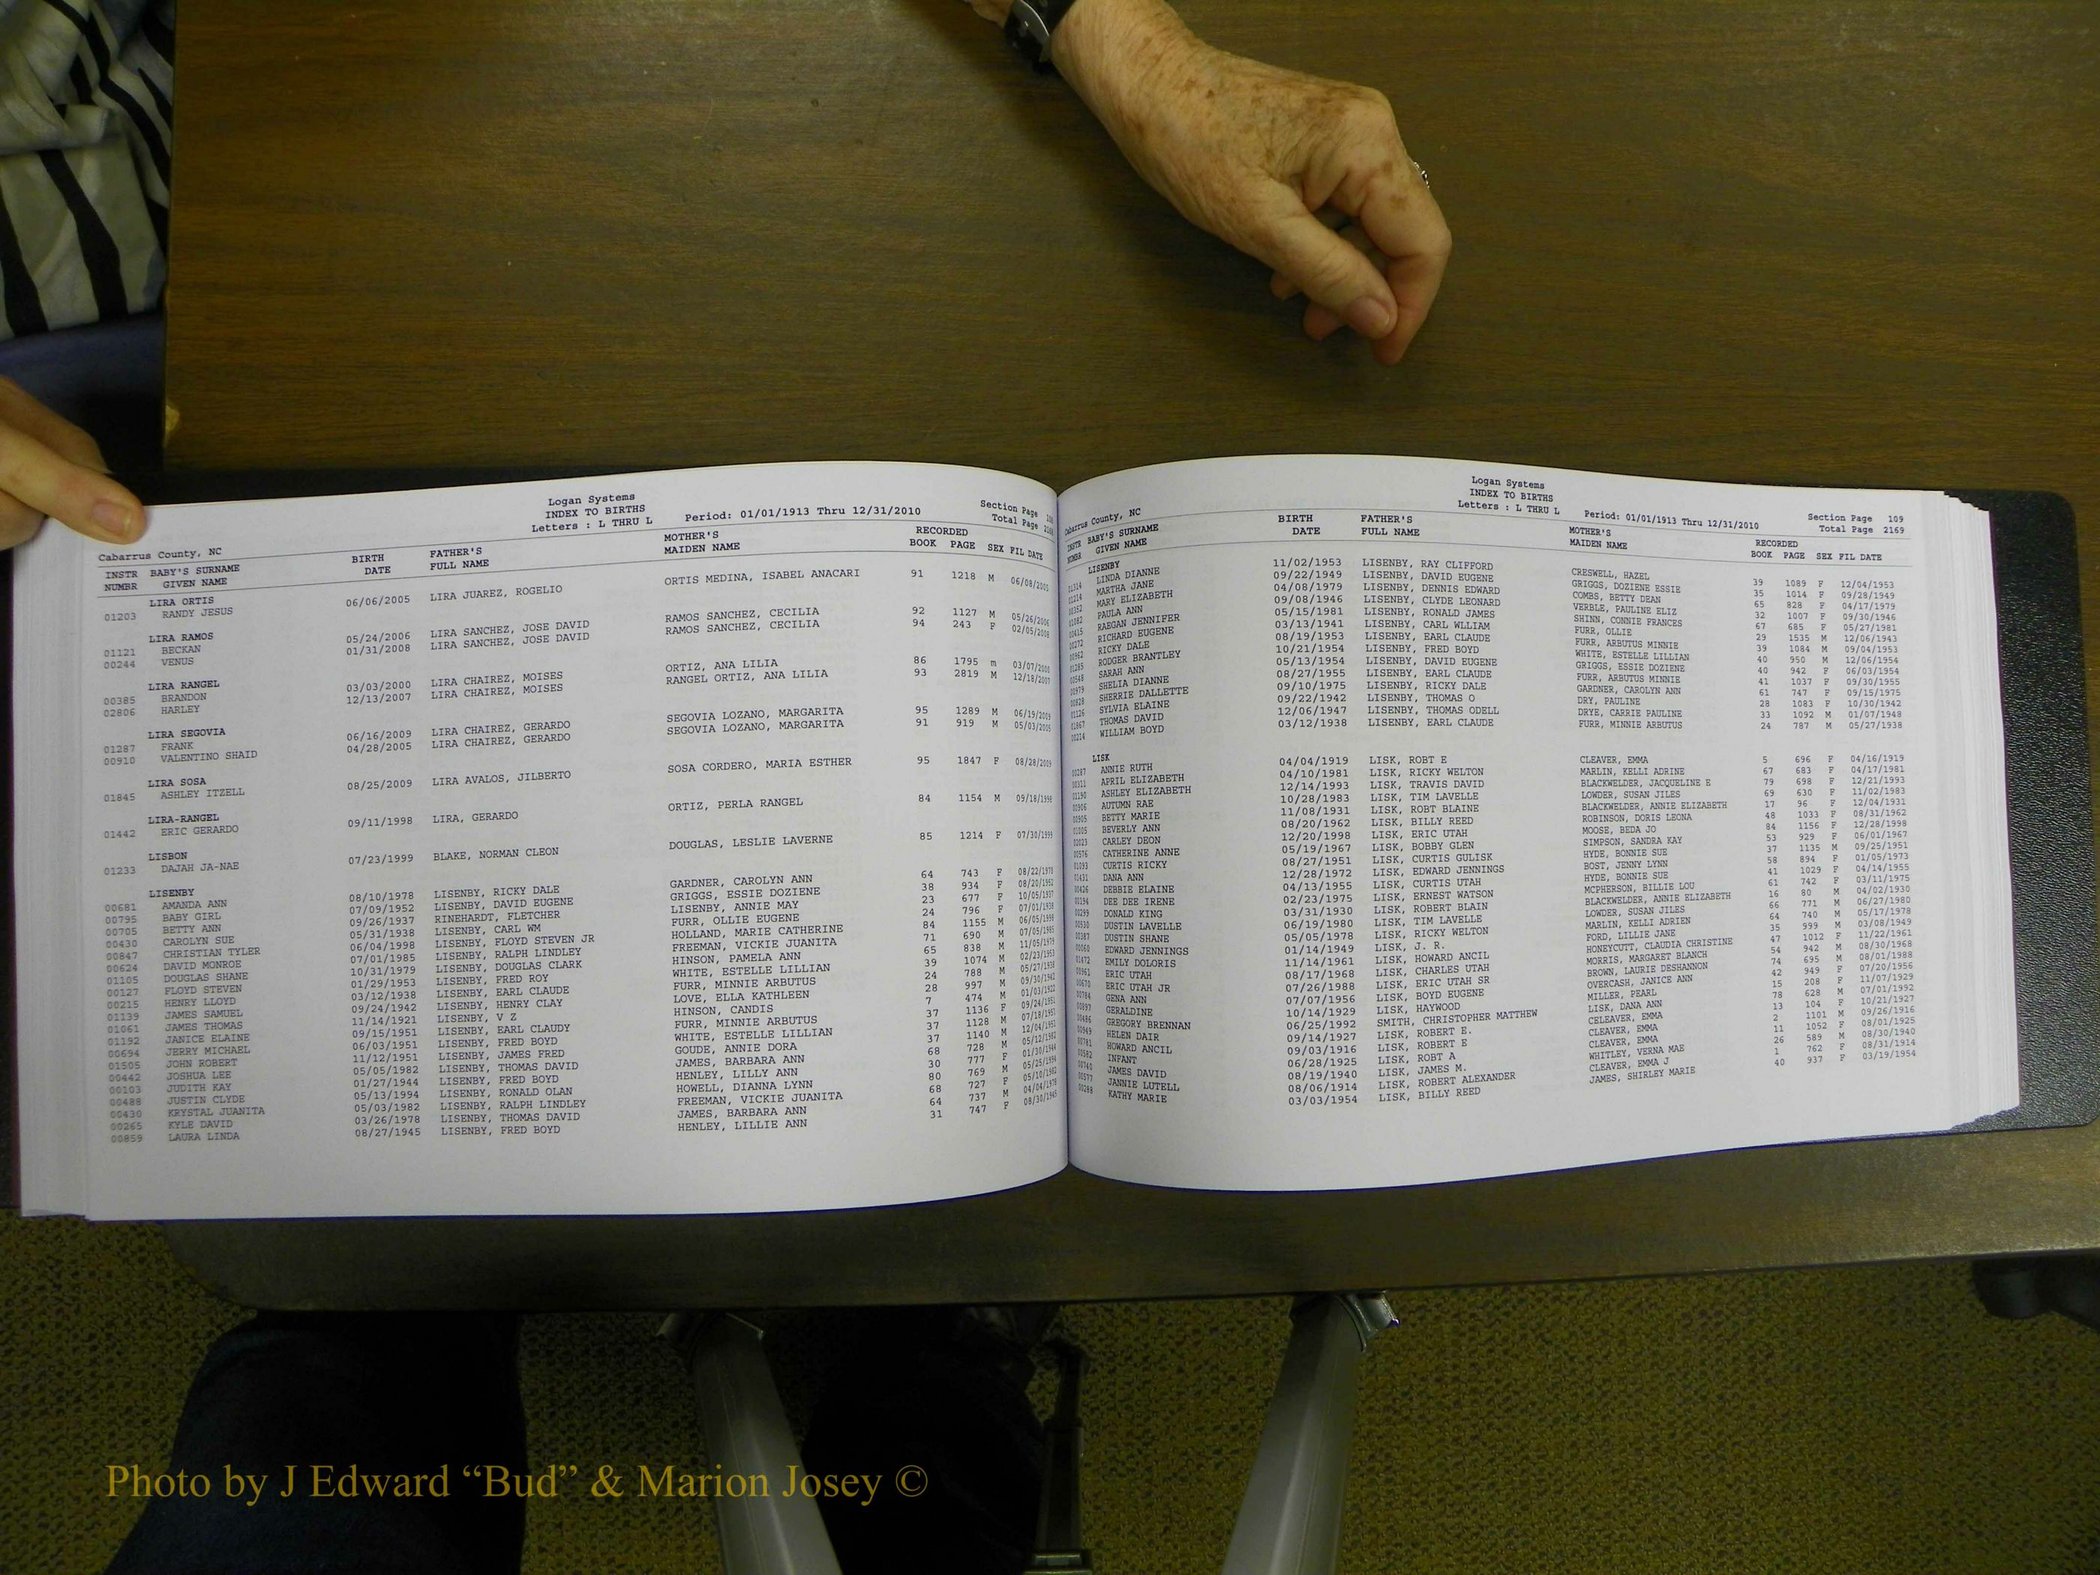 Logan Systems
INDEX TO BIRTHS
Letters : L THRU L Period: 01/01/1913 Thru 12/31/2010
Section Page
Total Page
Cabarrus County, NC
INSTR BABY'S SURNAME BIRTH FATHER'S MOTHER'S RECORDED
NUMBR GIVEN NAME DATE FULL NAME MAIDEN NAME BOOK PAGE SEX FIL DATE
LIRA ORTIS
01203 RANDY JESUS 06/06/2005 LIRA JUAREZ, ROGELIO ORTIS MEDINA, ISABEL ANACARI 91 1218 M 06/08/2005
LIRA RAMOS
01121 BECKAN 05/24/2006 LIRA SANCHEZ, JOSE DAVID RAMOS SANCHEZ, CECILIA 92 1127 M 05/26/2006
00244 VENUS 01/31/2008 LIRA SANCHEZ, JOSE DAVID RAMOS SANCHEZ, CECILIA 94 243 F 02/05/2008
LIRA RANGEL
00385 BRANDON 03/03/2000 LIRA CHAIREZ, MOISES ORTIZ, ANA LILIA 86 1795 m
02806 HARLEY 12/13/2007 LIRA CHAIREZ, MOISES RANGEL ORTIZ, ANA LILIA 93 2819 M 12/18/2007
LIRA SEGOVIA
01287 FRANK 06/16/2009 LIRA CHAIREZ, GERARDO SEGOVIA LOZANO, MARGARITA 95 1289 M 06/19/2009
00910 VALENTINO SHAID 04/28/2005 LIRA CHAIREZ, GERARDO SEGOVIA LOZANO, MARGARITA 91 919 M 05/03/2005
LIRA SOSA
01845 ASHLEY ITZELL 08/25/2009 LIRA AVALOS, JILBERTO SOSA CORDERO, MARIA ESTHER 95 1847 F 08/28/2009
LIRA-RANGEL
01442 ERIC GERARDO 09/11/1998 LIRA, GERARDO ORTIZ, PERLA RANGEL 84 1154 M 09/18/1998
LISBON
01233 DAJAH JA-NAE 07/23/1999 BLAKE, NORMAN CLEON DOUGLAS, LESLIE LAVERNE 85 1214 F 07/30/1999
LISENBY
00681 AMANDA ANN 08/10/1978 LISENBY, RICKY DALE GARDNER, CAROLYN ANN 64 743 F 08/22/1978
00795 BABY GIRL 07/09/1952 LISENBY, DAVID EUGENE GRIGGS, ESSIE DOZIENE 38 934 F 08/20/1952
00705 BETTY ANN 09/26/1937 RINEHARDT, FLETCHER LISENBY, ANNIE MAY 23 677 F 10/05/1937
00430 CAROLYN SUE 05/31/1938 LISENBY, CARL WM FURR, OLLIE EUGENE 24 796 F 07/01/1938
00847 CHRISTIAN TYLER 06/04/1998 LISENBY, FLOYD STEVEN JR HOLLAND, MARIE CATHERINE 84 1155 M 06/05/1998
00624 DAVID MONROE 07/01/1985 LISENBY, RALPH LINDLEY FREEMAN, VICKIE JUANITA 71 690 M 07/05/1985
01105 DOUGLAS SHANE 10/31/1979 LISENBY, DOUGLAS CLARK HINSON, PAMELA ANN 65 838 M 11/05/1979
00127 FLOYD STEVEN 01/29/1953 LISENBY, FRED ROY WHITE, ESTELLE LILLIAN 39 1074 M 02/23/1953
00215 HENRY LLOYD 03/12/1938 LISENBY, EARL CLAUDE FURR, MINNIE ARBUTUS 24 788 M 05/27/1938
01139 JAMES SAMUEL 09/24/1942 LISENBY, HENRY CLAY LOVE, ELLA KATHLEEN 28 997 M 09/30/1942
01061 JAMES THOMAS 11/14/1921 LISENBY, V Z HINSON, CANDIS 7 474 M 01/03/1922
01192 JANICE ELAINE 09/15/1951 LISENBY, EARL CLAUDY FURR, MINNIE ARBUTUS 37 1136 F 09/24/1951
00694 JERRY MICHAEL 06/03/1951 LISENBY, FRED BOYD WHITE, ESTELLE LILLIAN 37 1128 M 07/18/1951
01505 JOHN ROBERT 11/12/1951 LISENBY, JAMES FRED GOUDE, ANNIE DORA 37 1140 M 12/04/1951
00442 JOSHUA LEE 05/05/1982 LISENBY, THOMAS DAVID JAMES, BARBARA ANN 68 728 M 05/12/1982
00103 JUDITH KAY 01/27/1944 LISENBY, FRED BOYD HENLEY, LILLY ANN 30 777 F 01/30/1944
00488 JUSTIN CLYDE 05/13/1994 LISENBY, RONALD OLAN HOWELL, DIANNA LYNN 80 769 M 05/25/1994
00430 KRYSTAL JUANITA 05/03/1982 LISENBY, RALPH LINDLEY FREEMAN, VICKIE JUANITA 68 727 F 05/10/1982
00265 KYLE DAVID 03/26/1978 LISENBY, THOMAS DAVID JAMES, BARBARA ANN 64 737 M 04/04/1978
00859 LAURA LINDA 08/27/1945 LISENBY, FRED BOYD HENLEY, LILLIE ANN 31 747 F 08/30/1945
Logan Systems
INDEX TO BIRTHS
Letters : L THRU L Period: 01/01/1913 Thru 12/31/2010
Section Page 109
Total Page 2169
Cabarrus County, NC
INSTR BABY'S SURNAME BIRTH FATHER'S MOTHER'S RECORDED
NUMBR GIVEN NAME DATE FULL NAME MAIDEN NAME BOOK PAGE SEX FIL DATE
LISENBY
01314 LINDA DIANNE 11/02/1953 LISENBY, RAY CLIFFORD CRESWELL, HAZEL 39 1089 F 12/04/1953
01214 MARTHA JANE 09/22/1949 LISENBY, DAVID EUGENE GRIGGS, DOZIENE ESSIE 35 1014 F 09/28/1949
00352 MARY ELIZABETH 04/08/1979 LISENBY, DENNIS EDWARD COMBS, BETTY DEAN 65 828 F 04/17/1979
01082 PAULA ANN 09/08/1946 LISENBY, CLYDE LEONARD VERBLE, PAULINE ELIZ 32 1007 F 09/30/1946
00415 RAEGAN JENNIFER 05/15/1981 LISENBY, RONALD JAMES SHINN, CONNIE FRANCES 67 685 F 05/27/1981
00272 RICHARD EUGENE 03/13/1941 LISENBY, CARL WLLIAM FURR, OLLIE 29 1535 M 12/06/1943
00962 RICKY DALE 08/19/1953 LISENBY, EARL CLAUDE FURR, ARBUTUS MINNIE 39 1084 M 09/04/1953
01285 RODGER BRANTLEY 10/21/1954 LISENBY, FRED BOYD WHITE, ESTELLE LILLIAN 40 950 M 12/06/1954
00548 SARAH ANN 05/13/1954 LISENBY, DAVID EUGENE GRIGGS, ESSIE DOZIENE 40 942 F 06/03/1954
00979 SHELIA DIANNE 08/27/1955 LISENBY, EARL CLAUDE FURR, ARBUTUS MINNIE 41 1037 F 09/30/1955
00828 SHERRIE DALLETTE 09/10/1975 LISENBY, RICKY DALE GARDNER, CAROLYN ANN 61 747 F 09/15/1975
01126 SYLVIA ELAINE 09/22/1942 LISENBY, THOMAS O DRY, PAULINE 28 1083 F 10/30/1942
01867 THOMAS DAVID 12/06/1947 LISENBY, THOMAS ODELL DRYE, CARRIE PAULINE 33 1092 M 01/07/1948
00214 WILLIAM BOYD 03/12/1938 LISENBY, EARL CLAUDE FURR, MINNIE ARBUTUS 24 787 M 05/27/1938
LISK
00287 ANNIE RUTH 04/04/1919 LISK, ROBT E CLEAVER, EMMA 5 696 F 04/16/1919
00311 APRIL ELIZABETH 04/10/1981 LISK, RICKY WELTON MARLIN, KELLI ADRINE 67 683 F 04/17/1981
01190 ASHLEY ELIZABETH 12/14/1993 LISK, TRAVIS DAVID BLACKWELDER, JACQUELINE E 79 698 F 12/21/1993
00906 AUTUMN RAE 10/28/1983 LISK, TIM LAVELLE LOWDER, SUSAN JILES 69 630 F 11/02/1983
00905 BETTY MARIE 11/08/1931 LISK, ROBT BLAINE BLACKWELDER, ANNIE ELIZABETH 17 96 F 12/04/1931
01005 BEVERLY ANN 08/20/1962 LISK, BILLY REED ROBINSON, DORIS LEONA 48 1033 F 08/31/1962
02023 CARLEY DEON 12/20/1998 LISK, ERIC UTAH MOOSE, BEDA JO 84 1156 F 12/28/1998
00576 CATHERINE ANNE 05/19/1967 LISK, BOBBY GLEN SIMPSON, SANDRA KAY 53 929 F 06/01/1967
01093 CURTIS RICKY 08/27/1951 LISK, CURTIS GULISK HYDE, BONNIE SUE 37 1135 M 09/25/1951
01431 DANA ANN 12/28/1972 LISK, EDWARD JENNINGS BOST, JENNY LYNN 58 894 F 01/05/1973
00426 DEBBIE ELAINE 04/13/1955 LISK, CURTIS UTAH HYDE, BONNIE SUE 41 1029 F 04/14/1955
00194 DEE DEE IRENE 02/23/1975 LISK, ERNEST WATSON MCPHERSON, BILLIE LOU 61 742 F 03/11/1975
00299 DONALD KING 03/31/1930 LISK, ROBERT BLAIN BLACKWELDER, ANNIE ELIZABETH 16 80 M 04/02/1930
00930 DUSTIN LAVELLE 06/19/1980 LISK, TIM LAVELLE LOWDER, SUSAN JILES 66 771 M 06/27/1980
00387 DUSTIN SHANE 05/05/1978 LISK, RICKY WELTON MARLIN, KELLI ADRIEN 64 740 M 05/17/1978
00060 EDWARD JENNINGS 01/14/1949 LISK, J. R. FORD, LILLIE JANE 35 999 M 03/08/1949
01472 EMILY DOLORIS 11/14/1961 LISK, HOWARD ANCIL HONEYCUTT, CLAUDIA CHRISTINE 47 1012 F 11/22/1961
00961 ERIC UTAH 08/17/1968 LISK, CHARLES UTAH MORRIS, MARGARET BLANCH 54 942 M 08/30/1968
00670 ERIC UTAH JR 07/26/1988 LISK, ERIC UTAH SR BROWN, LAURIE DESHANNON 74 695 M 08/01/1988
00784 GENA ANN 07/07/1956 LISK, BOYD EUGENE OVERCASH, JANICE ANN 42 949 F 07/20/1956
00897 GERALDINE 10/14/1929 LISK, HAYWOOD MILLER, PEARL 15 208 F 11/07/1929
00486 GREGORY BRENNAN 06/25/1992 SMITH, CHRISTOPHER MATTHEW LISK, DANA ANN 78 628 M 07/01/1992
00949 HELEN DAIR 09/14/1927 LISK, ROBERT E. CELEAVER, EMMA 13 104 F 10/21/1927
00781 HOWARD ANCIL 09/03/1916 LISK, ROBERT E CLEAVER, EMMA 2 1101 M 09/26/1916
00582 INFANT 06/28/1925 LISK, ROBT A CLEAVER, EMMA 11 1052 F 08/01/1925
00760 JAMES DAVID 08/19/1940 LISK, JAMES M. WHITLEY, VERNA MAE 26 589 M 08/30/1940
00577 JANNIE LUTELL 08/06/1914 LISK, ROBERT ALEXANDER CLEAVER, EMMA J 1 762 F 08/31/1914
00288 KATHY MARIE 03/03/1954 LISK, BILLY REED JAMES, SHIRLEY MARIE 40 937 F 03/19/1954
Photo by J Edward “Bud” & Marion Josey ©